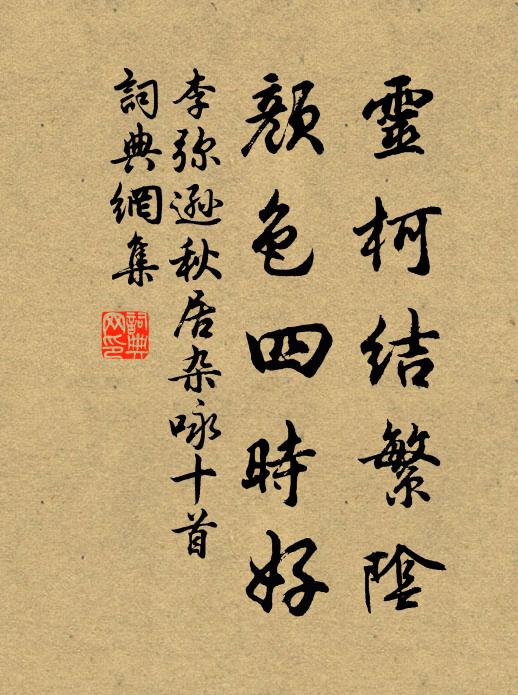 靈柯結繁陰
顏色四時好
李弥遜秋居杂咏十首
詞典網集
詞典网印